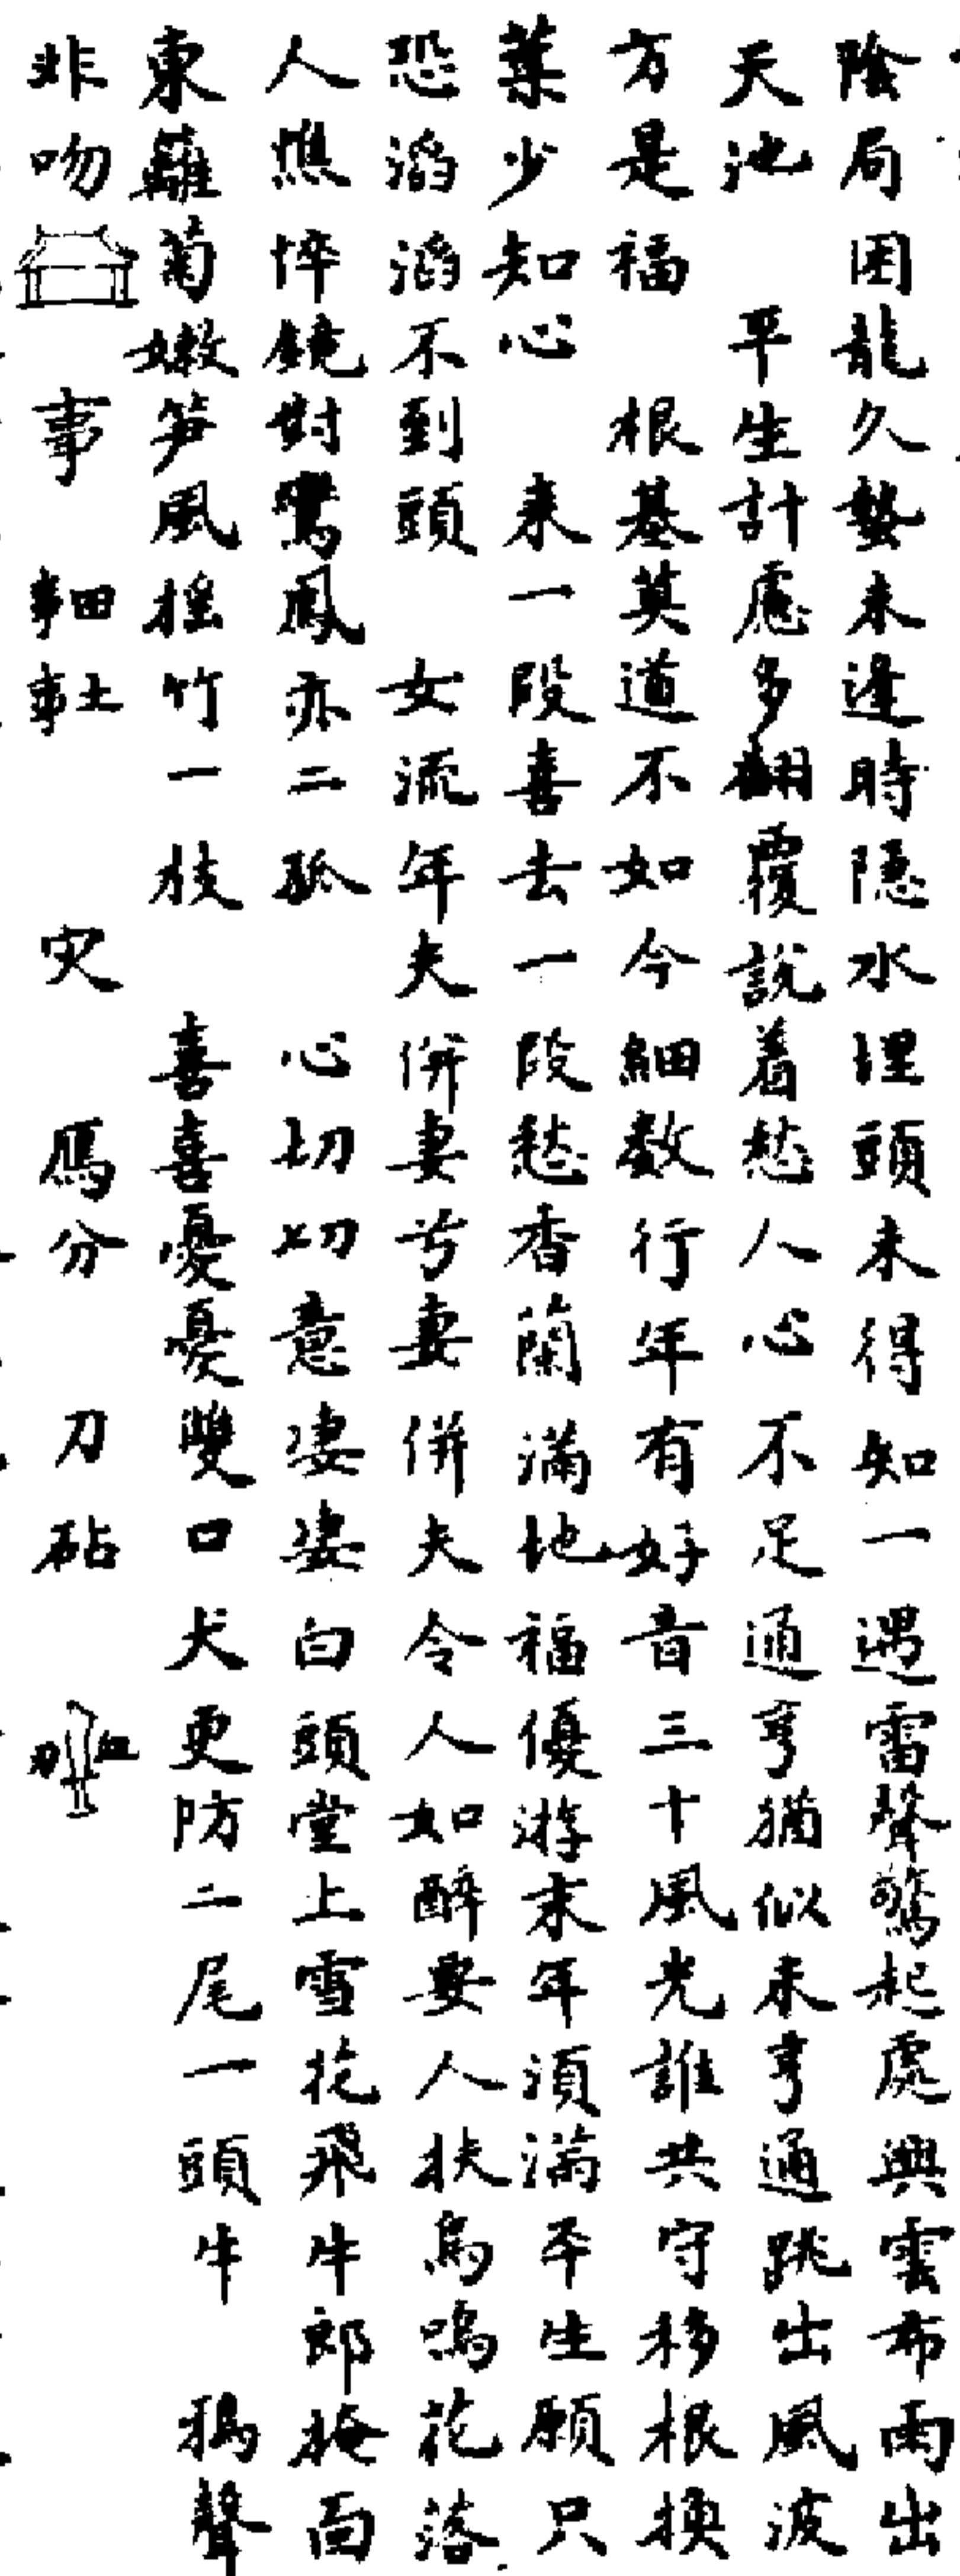 陰局困龍久蟄未逢時隱水埋頭未得知一遇雷聲驚起處興雲布雨出
天池 平生計慮多翻覆說着愁人心不足通亨猶似未亨通跳出風波
方是福 根基莫道不如今細數行年有好音三十風光誰共守移根換
葉少知心 來一段喜去一段愁香蘭滿地福優游末年須滿平生願只
恐滔滔不到頭 女流年夫併妻兮妻併夫令人如醉要人扶烏鳴花落
人憔悴鏡對鸞鳳亦二孤 心切切意悽悽白頭堂上雪花飛牛郎掩面
東籬菊嫩笋風搖竹一枝 喜喜憂憂雙口犬更防二尾一頭牛 鴉聲
非吻 事 事田事土 灾 鴈分 刀砧